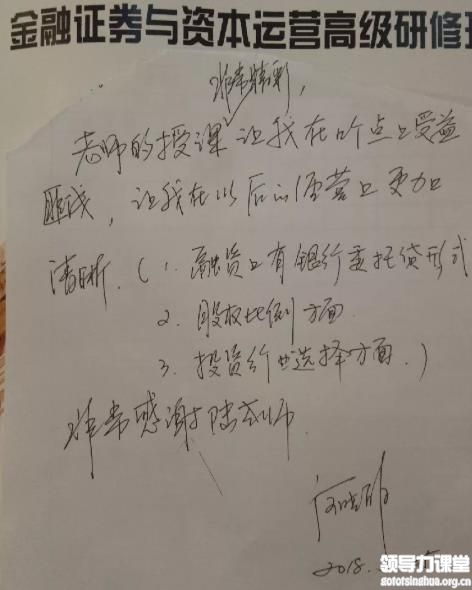 金融证券与资本运营高级研修
非常精彩，
老师的授课让我在几点上受益
匪浅，让我在以后的经营上更加
清晰．（1．融资上有银行委托贷形式
2．股权比例方面．
3．投资行业选择方面．）
非常感谢陆老师
2018.
领导力课堂
gototsinghua.org.cn